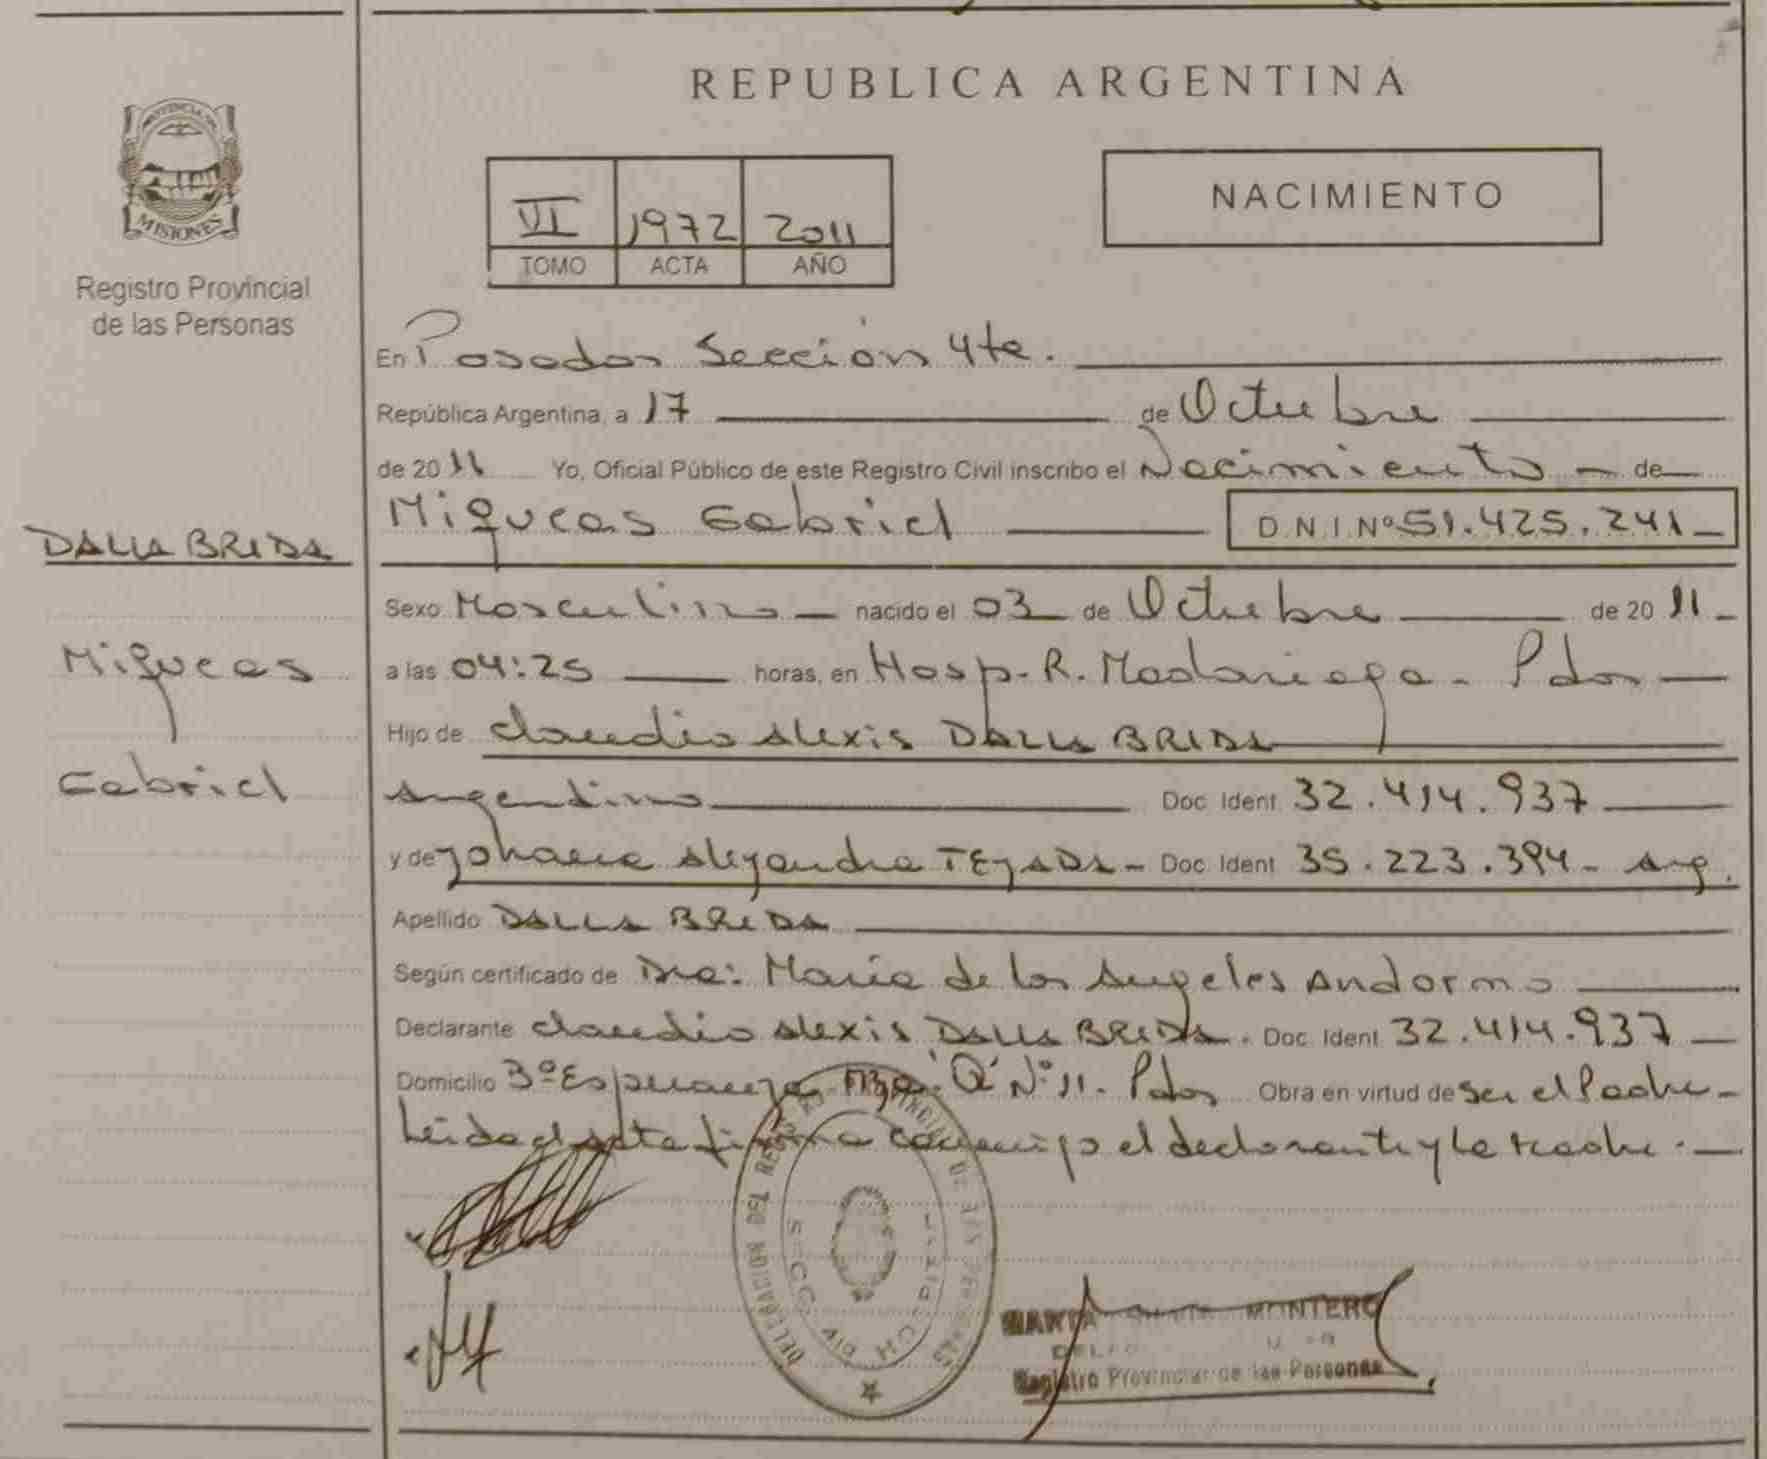 REPUBLICA ARGENTINA
PROVINCIA DE
MISIONES
Registro Provincial
de las Personas
VI 1972 2011
TOMO ACTA AÑO
NACIMIENTO
En Posadas Sección 4ta.
República Argentina, a 17 de Octubre
de 2011 Yo, Oficial Público de este Registro Civil inscribo el Nacimiento de
Miqueas Gabriel D.N.I. Nº 51.425.241
DALLA BRIDA
Miqueas
Gabriel
Sexo Masculino nacido el 03 de Octubre de 2011
a las 04:25 horas, en Hosp. R. Madariaga - Pdas
Hijo de Claudio Alexis DALLA BRIDA
Argentino Doc Ident 32.414.937
y de Johana Alejandra TEJADA - Doc Ident 35.223.394 - Arg.
Apellido DALLA BRIDA
Según certificado de Dra: María de los Angeles Andorno
Declarante Claudio Alexis DALLA BRIDA. Doc Ident 32.414.937
Domicilio 3º Esperanza Mza. "Q" Nº 11. Pdas Obra en virtud de ser el Padre -
Leida el acta firma conmigo el declarante y la madre. -
DELEGACION DEL REGISTRO DE LAS PERSONAS
MONTERO
Registro Provincial de las Personas